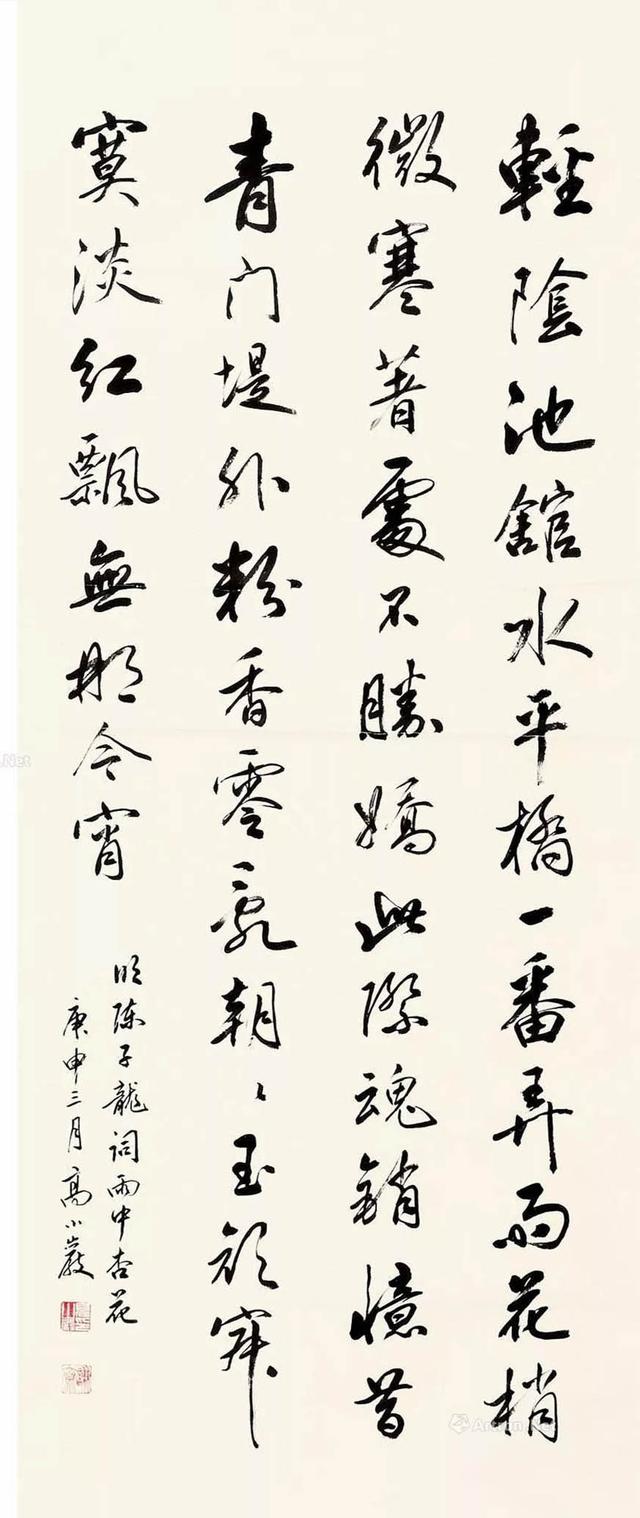 輕陰池館水平橋一番弄雨花梢
微寒著處不勝嬌此際魂銷憶昔
青门堤外粉香零亂朝〻玉顏寂
寞淡红飄無那今宵
明陈子龍词雨中杏花
庚申三月高小巖